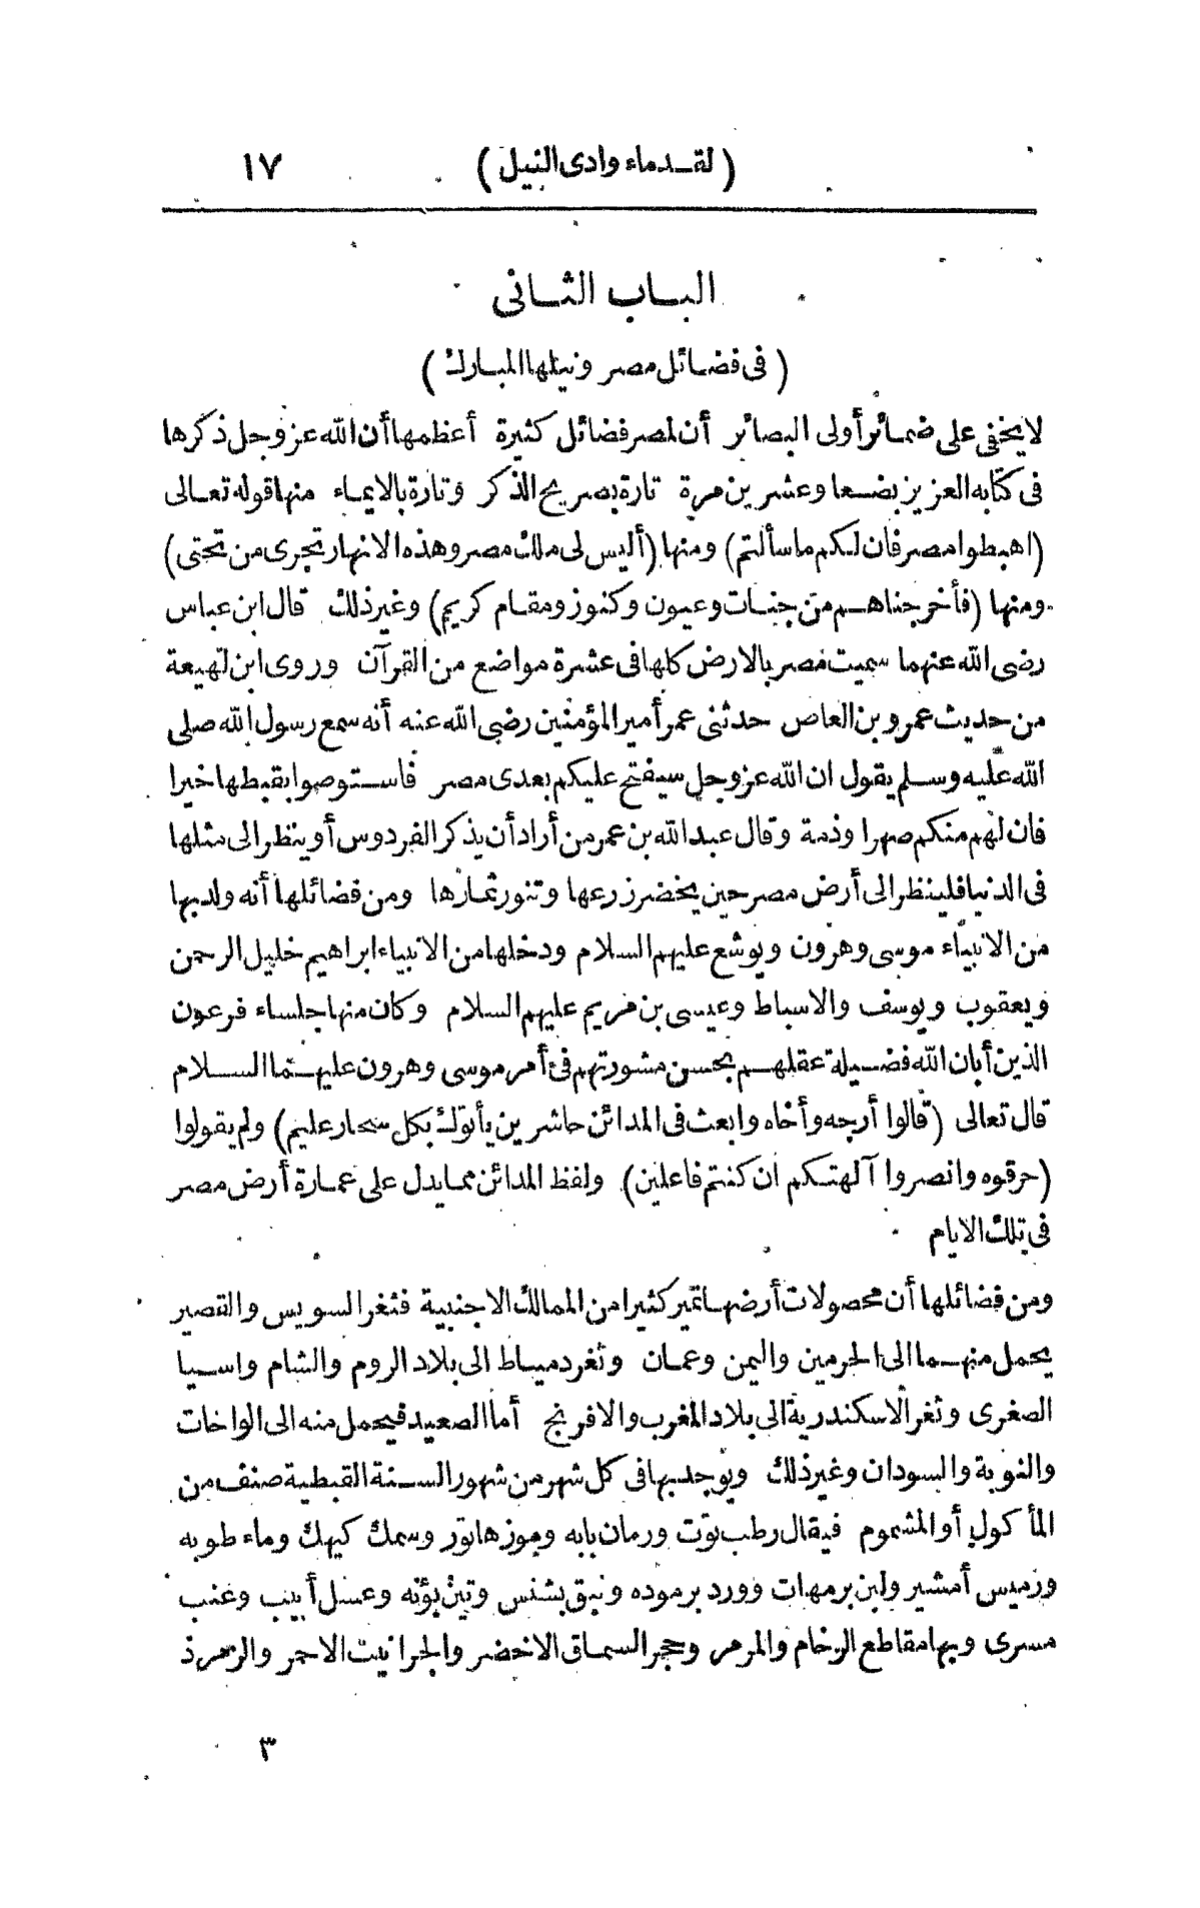 (لقدماء وادى النيل) ١٧
الباب الثانى
(فى فضائل مصر ونيلها المبارك)
لا يخفى على ضمائر أولى البصائر أن لمصر فضائل كثيرة أعظمها أن الله عز وجل ذكرها
فى كتابه العزيز بضعا وعشرين مرة تارة بصريح الذكر وتارة بالايماء منها قوله تعالى
(اهبطوا مصر فان لكم ما سألتم) ومنها (أليس لى ملك مصر وهذه الانهار تجرى من تحتى)
ومنها (فأخرجناهم من جنات وعيون وكنوز ومقام كريم) وغير ذلك قال ابن عباس
رضى الله عنهما سميت مصر بالارض كلها فى عشرة مواضع من القرآن وروى ابن لهيعة
من حديث عمرو بن العاص حدثنى عمر أمير المؤمنين رضى الله عنه أنه سمع رسول الله صلى
الله عليه وسلم يقول ان الله عز وجل سيفتح عليكم بعدى مصر فاستوصوا بقبطها خيرا
فان لهم منكم صهرا وذمة وقال عبد الله بن عمر من أراد أن يذكر الفردوس أو ينظر الى مثلها
فى الدنيا فلينظر الى أرض مصر حين يخضر زرعها وتنور ثمارها ومن فضائلها أنه ولد بها
من الانبياء موسى وهرون ويوشع عليهم السلام ودخلها من الانبياء ابراهيم خليل الرحمن
ويعقوب ويوسف والاسباط وعيسى بن مريم عليهم السلام وكان منها جلساء فرعون
الذين أبان الله فضيلة عقلهم بحسن مشورتهم فى أمر موسى وهرون عليهما السلام
قال تعالى (قالوا أرجه وأخاه وابعث فى المدائن حاشرين يأتوك بكل سحار عليم) ولم يقولوا
(حرقوه وانصروا آلهتكم ان كنتم فاعلين) ولفظ المدائن مما يدل على عمارة أرض مصر
فى تلك الايام
ومن فضائلها أن محصولات أرضها تمير كثيرا من الممالك الاجنبية فثغر السويس والقصير
يحمل منهما الى الحرمين واليمن وعمان وثغر دمياط الى بلاد الروم والشام واسيا
الصغرى وثغر الاسكندرية الى بلاد المغرب والافرنج أما الصعيد فيحمل منه الى الواحات
والنوبة والسودان وغير ذلك ويوجد بها فى كل شهر من شهور السنة القبطية صنف من
المأكول أو المشموم فيقال رطب توت ورمان بابه وموز هاتور وسمك كيهك وماء طوبه
ورميس أمشير ولبن برمهات وورد برموده ونبق بشنس وتين بؤنه وعسل أبيب وعنب
مسرى وبها مقاطع الرخام والمرمر وحجر السماقى الاخضر والجرانيت الاحمر والزمرذ
٣